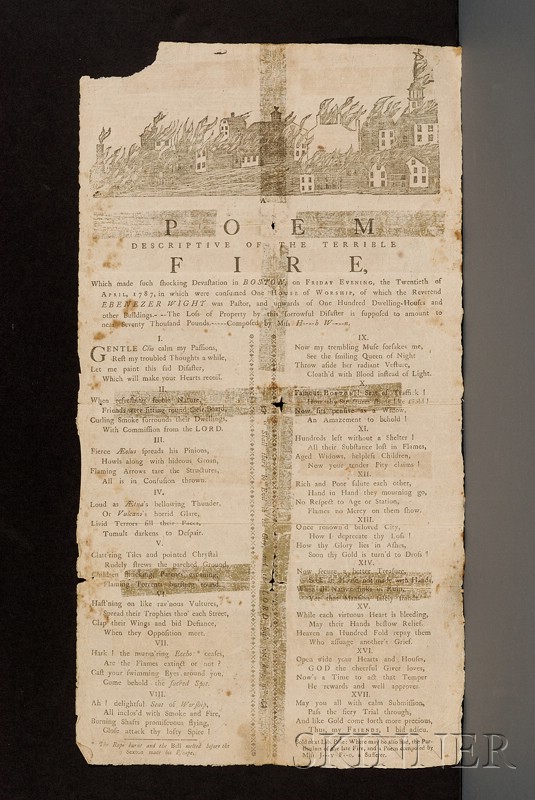 A
POEM
DESCRIPTIVE OF THE TERRIBLE
FIRE,
Which made such shocking Devastation in BOSTON, on FRIDAY EVENING, the Twentieth of
APRIL, 1787, in which were consumed One HOUSE of WORSHIP, of which the Reverend
EBENEZER WIGHT was Pastor, and upwards of One Hundred Dwelling-Houses and
other Buildings.---The Loss of Property by this sorrowful Disaster is supposed to amount to
near Seventy Thousand Pounds.----Composed by Miss H
I.
GENTLE Clio calm my Passions,
Rest my troubled Thoughts a while,
Let me paint this sad Disaster,
Which will make your Hearts recoil.
II.
When refreshing feeble Nature,
Friends were sitting round their Board,
Curling Smoke surrounds their Dwellings,
With Commission from the LORD.
III.
Fierce Æolus spreads his Pinions,
Howls along with hideous Groan,
Flaming Arrows tare the Structures,
All is in Confusion thrown.
IV.
Loud as Ætna's bellowing Thunder.
Or Vulcano's horrid Glare,
Livid Terrors fill their Faces,
Tumult darkens to Despair.
V.
Clatt'ring Tiles and pointed Chrystal
Rudely strews the parched Ground,
Children shrieking, Parents
Flaming Torrents burning round.
VI.
Hast'ning on like rav'nous Vultures,
Spread their Trophies thro' each Street,
Clap their Wings and bid Defiance,
When they Opposition meet.
VII.
Hark! the mourn'ring Eccho* ceases,
Are the Flames extinct or not?
Cast your swimming Eyes around you,
Come behold the sacred Spot.
VIII.
Ah! delightful Seat of Worship,
All inclos'd with Smoke and Fire,
Burning Shafts promiscuous flying,
Close attack thy lofty Spire!
*The Rope burnt and the Bell melted before the
Sexton made his Escape.
IX.
Now my trembling Muse forsakes me,
See the smiling Queen of Night
Throw aside her radiant Vesture,
Cloath'd with Blood instead of Light.
X.
Famous BOSTON! Seat of Traffick!
How thy Structures
Now sits pensive as a Widow,
An Amazement to behold!
XI.
Hundreds left without a Shelter!
All their Substance lost in Flames,
Aged Widows, helpless Children,
Now your tender Pity claims!
XII.
Rich and Poor salute each other,
Hand in Hand they mourning go,
No Respect to Age or Station,
Flames no Mercy on them show.
XIII.
Once renown'd beloved City,
How I deprecate thy Loss!
How thy Glory lies in Ashes,
Soon thy Gold is turn'd to Dross!
XIV.
Now secure a better Treasure,
Seek an House not made with Hands,
When all Nature sinks in Ruin,
XV.
While each virtuous Heart is bleeding,
May their Hands bestow Relief,
Heaven an Hundred Fold repay them
Who assuage another's Grief.
XVI.
Open wide your Hearts and Houses,
GOD the cheerful Giver loves,
Now's a Time to act that Temper
He rewards and well approves
XVII.
May you all with calm Submission,
Pass the fiery Trial through,
And like Gold come forth more precious,
Thus, my FRIENDS, I bid adieu.
Where may be also had, the Par-
ticulars of the late Fire, and a Poem composed by
SKINNER